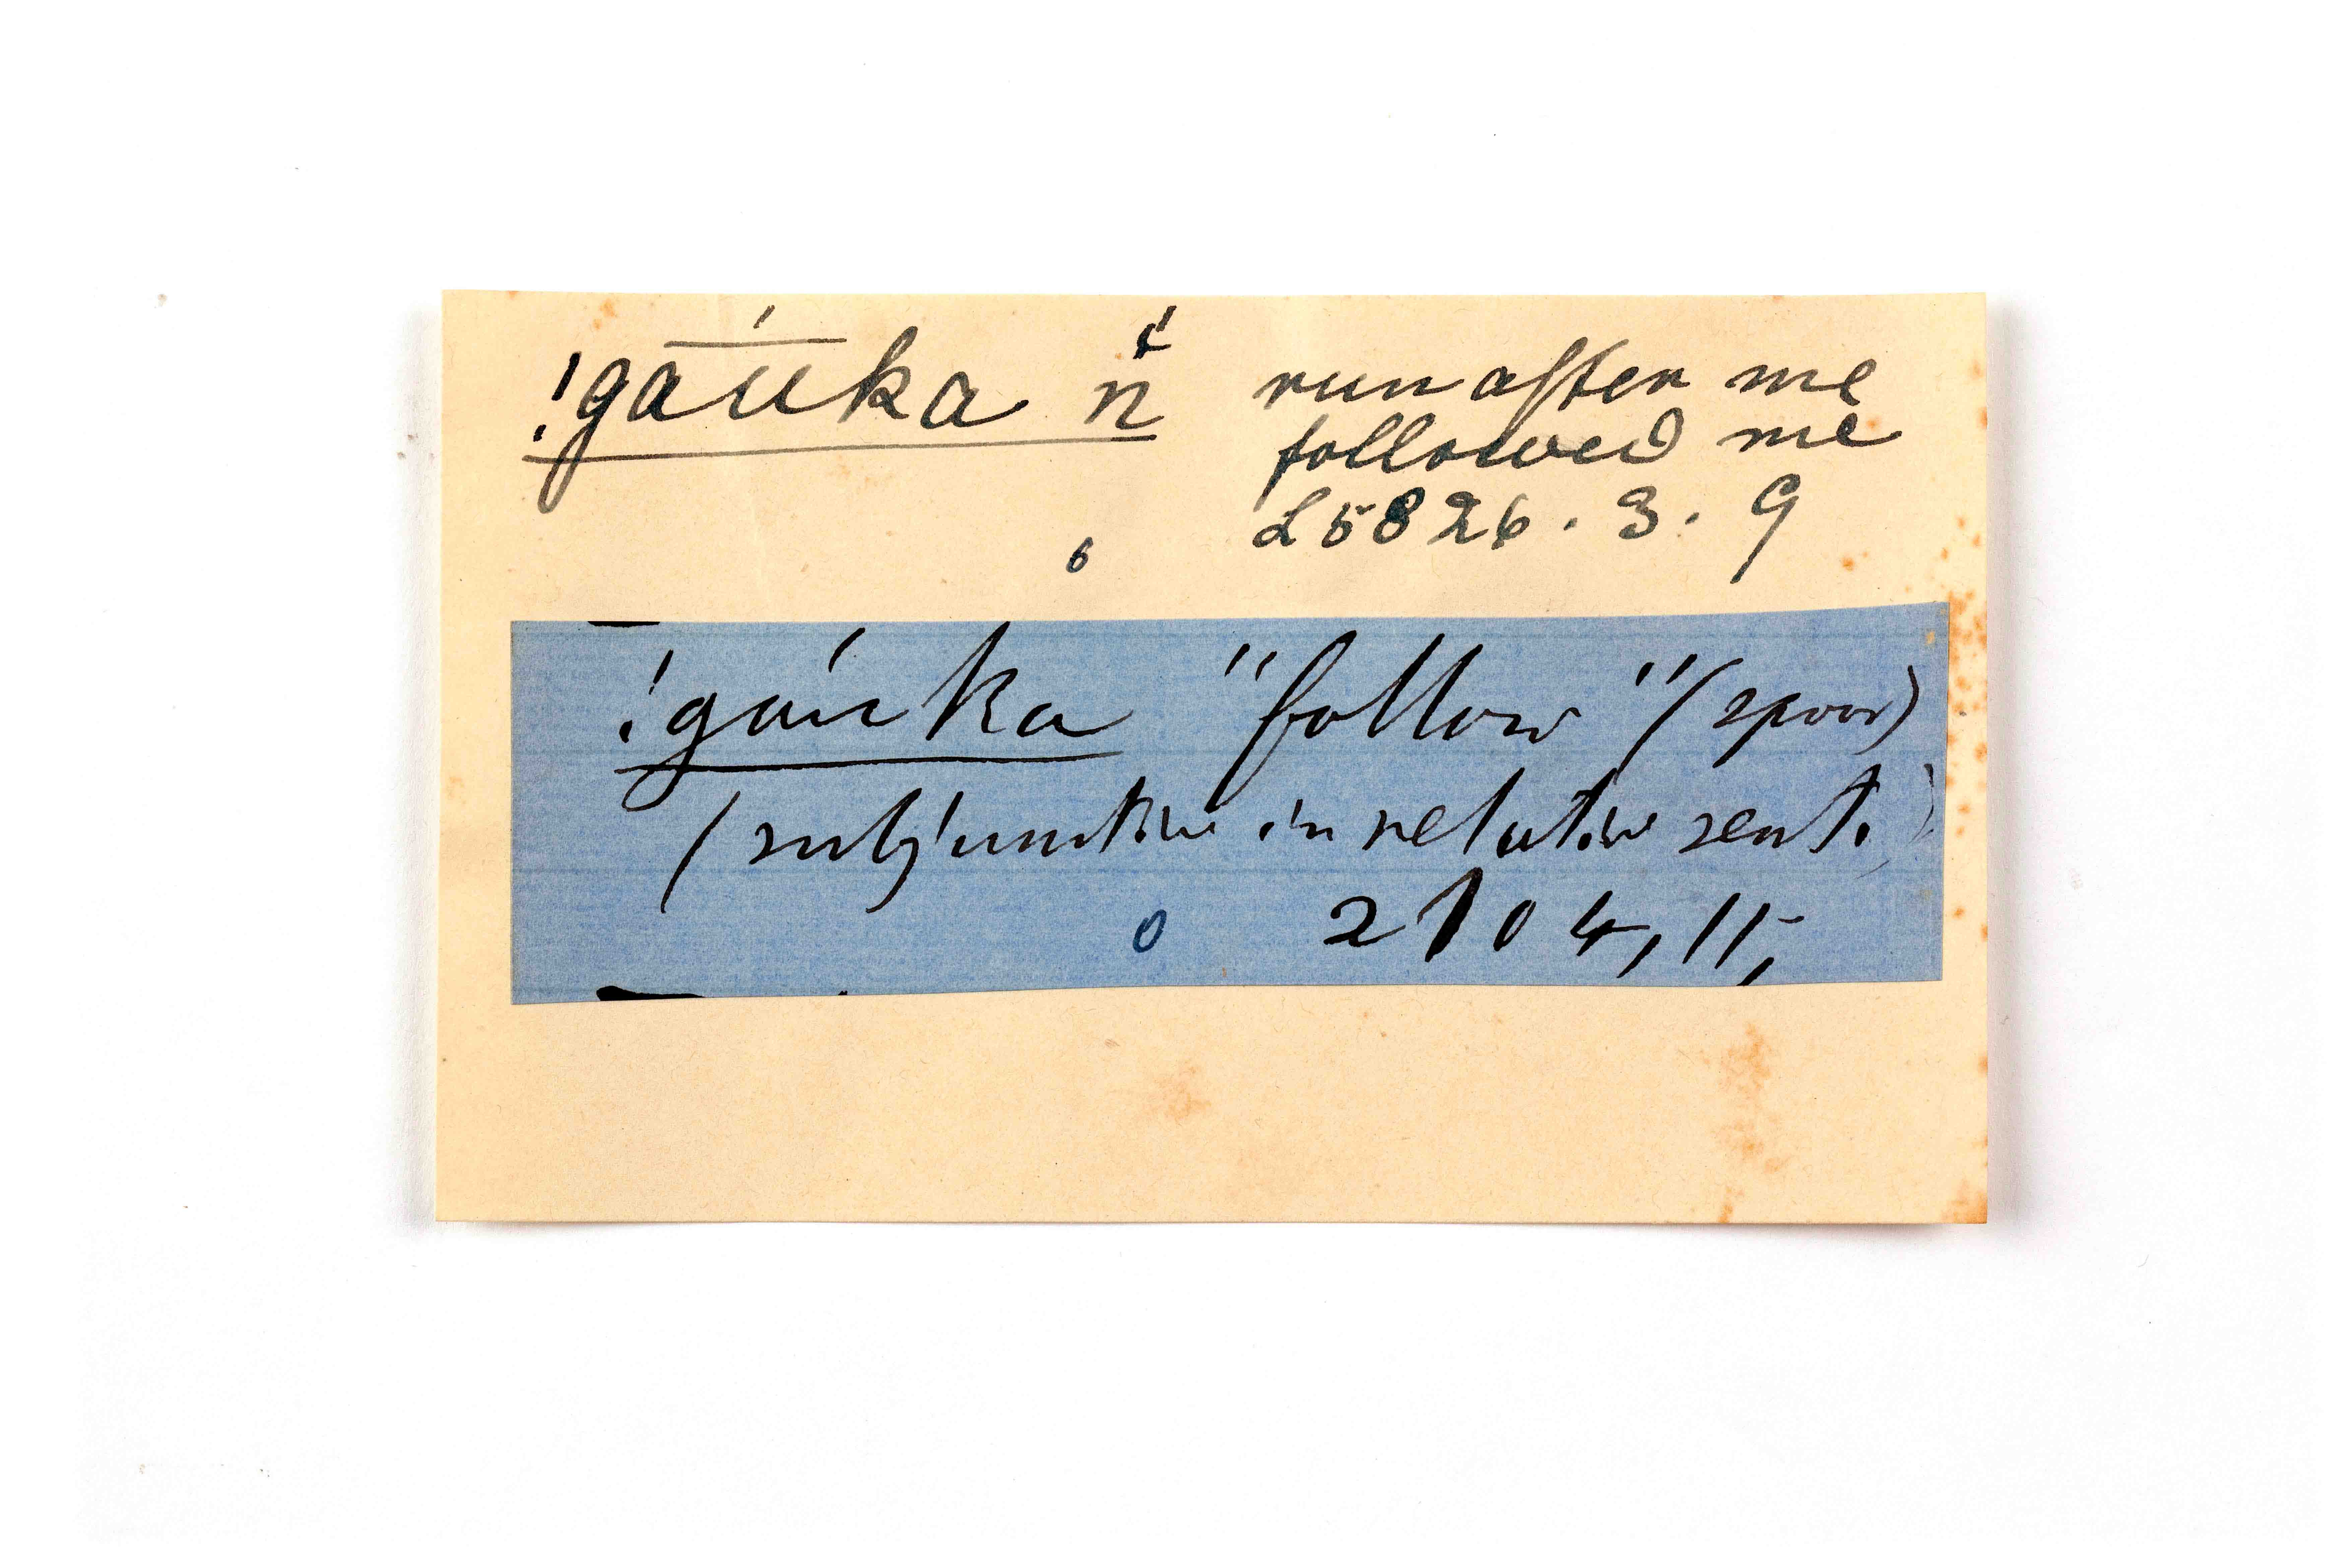 !gau̅́ka n̆́ run after me
followed me
L5826.3.9
6
!gaúka "follow" (spoor)
(subjunctive in relative sent.)
0 2104, 11,